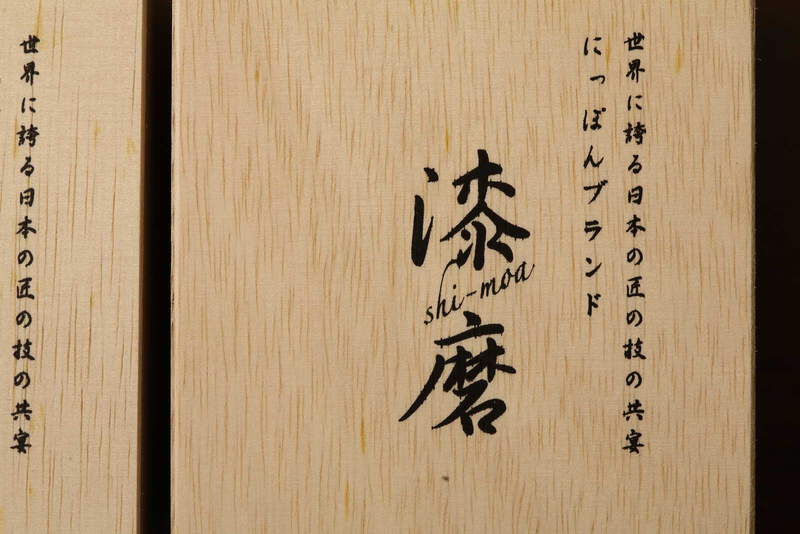 世界に誇る日本の匠の技の共宴
にっぽんブランド
漆
shi-moa
磨
世界に誇る日本の匠の技の共宴